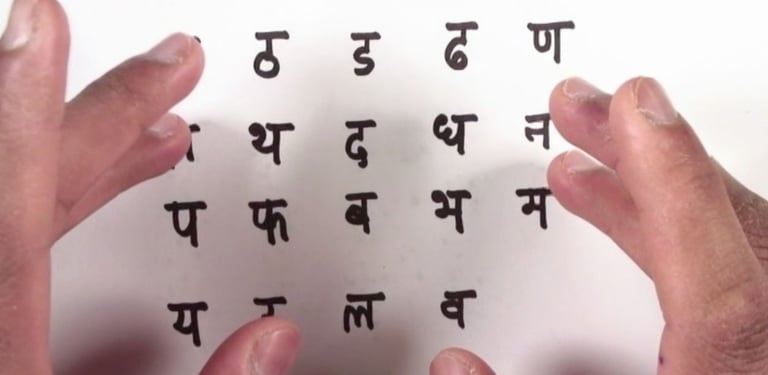 ठ ड ढ ण
थ द ध न
प फ ब भ म
य ल व